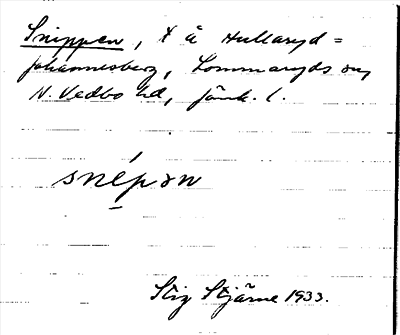 Snippen, t å Hullaryd =
Johannesberg, Lommaryds sn,
N. Vedbo hd, Jönk. l.
snépən
Stig Stjärne 1933.